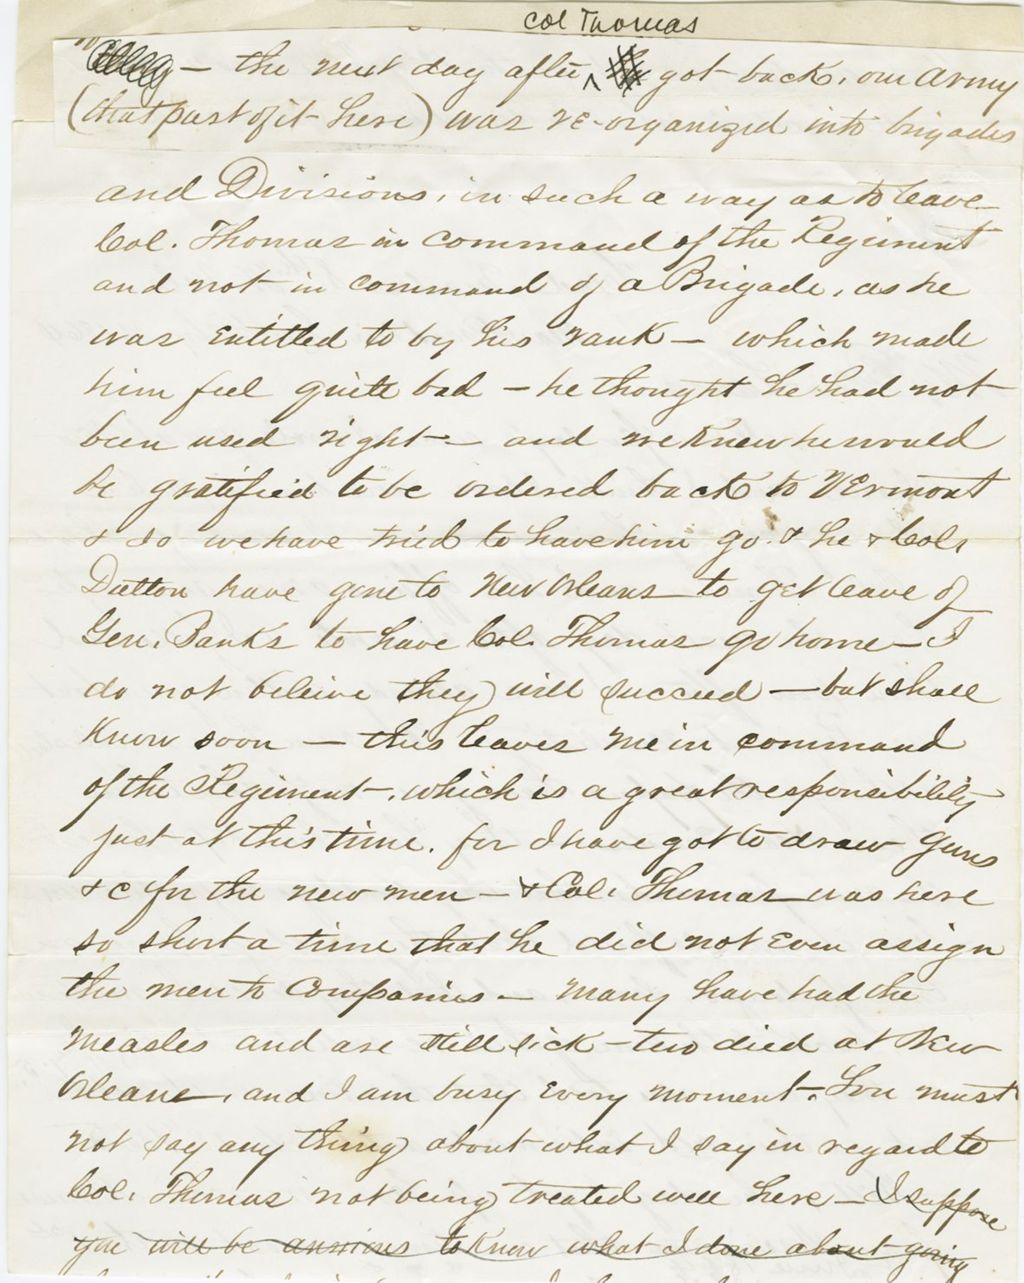 Col Thomas
— the next day after got back, our Army
(that part of it here) was re-organized into brigades
and Divisions, in such a way as to leave
Col. Thomas in command of the Regiment
and not in command of a Brigade, as he
was entitled to by his rank — which made
him feel quite bad — he thought he had not
been used right — and we knew he would
be gratified to be ordered back to Vermont
& so we have tried to have him go & he & Col.
Dutton have gone to New Orleans to get leave of
Gen. Banks to have Col. Thomas go home — I
do not beleive they will succeed — but shall
know soon — this leaves me in command
of the Regiment, which is a great responsibility
just at this time, for I have got to draw guns
&c for the new men — & Col. Thomas was here
so short a time that he did not even assign
the men to Companies — Many have had the
measles and are still sick — two died at New
Orleans, and I am busy every moment. You must
not say any thing about what I say in regard to
Col. Thomas not being treated well here — I suppose
you will be anxious to know what I done about going